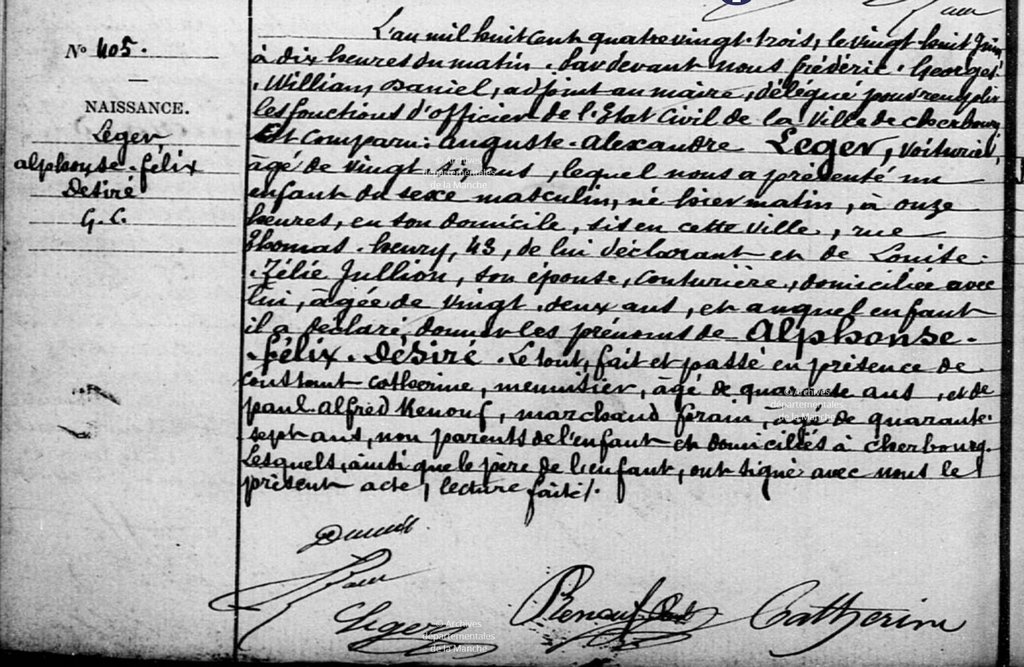 Nº 405.
NAISSANCE.
Leger
alphonse-félix
Désiré
G. C.
L'an mil huit cent quatre vingt-trois, le vingt huit Juin
à dix heures du matin. Pardevant nous frédéric-Georges
William Daniel, adjoint au maire, délégué pour remplir
les fonctions d'officier de l'Etat Civil de la Ville de cherbourg
Est comparu: auguste-alexandre LEGER, voiturier,
âgé de vingt ans, lequel nous a présenté un
enfant du sexe masculin, né hier matin, à onze
heures, en son domicile, sis en cette ville, rue
Thomas-henry, 43, de lui déclarant et de Louise-
Zélie Jullion, son épouse, couturière, domiciliée avec
lui, âgée de vingt-deux ans, et auquel enfant
il a déclaré donner les prénoms de Alphonse-
félix-Désiré. Le tout, fait et passé en présence de
constant catherine, menuisier, âgé de quarante ans, et de
paul-alfred Renouf, marchand forain, âgé de quarante-
sept ans, non parents de l'enfant et domiciliés à cherbourg.
Lesquels, ainsi que le père de l'enfant, ont signé avec nous le
présent acte, lecture faite.
Leger
Renouf
Catherine
© Archives
départementales
de la Manche
© Archives
départementales
de la Manche
© Archives
départementales
de la Manche